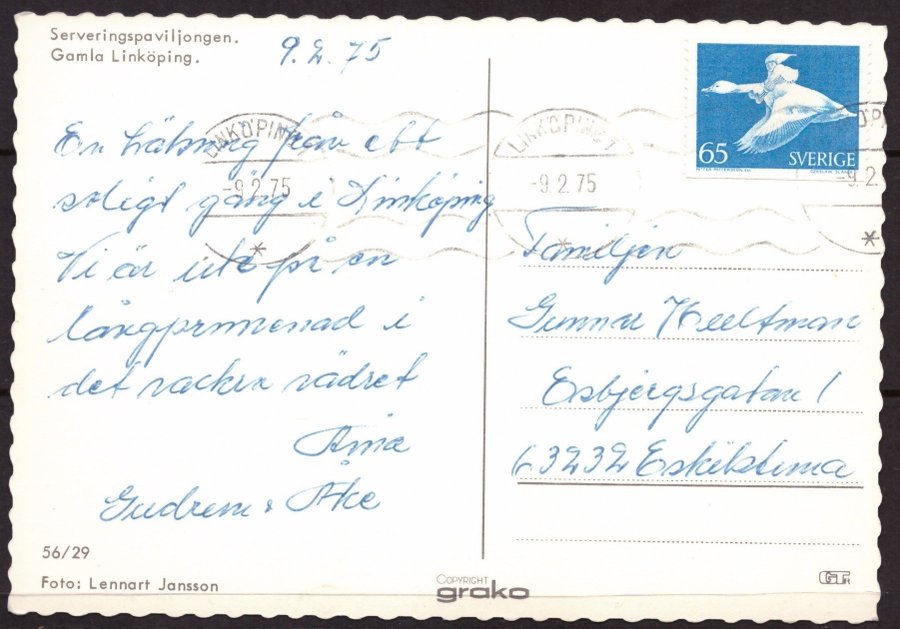 Serveringspaviljongen.
Gamla Linköping.
9.2.75
En hälsning från ett
soligt gäng i Linköping
Vi är ute på en
långpromenad i
det vackra vädret
Aina
Gudrun & Åke
56/29
Foto: Lennart Jansson
COPYRIGHT
grako
LINKÖPING 1
-9.2.75
LINKÖPING 1
-9.2.75
-9.2.
65 SVERIGE
Familjen
Gunnar Hultman
Esbjergsgatan 1
63232 Eskilstuna